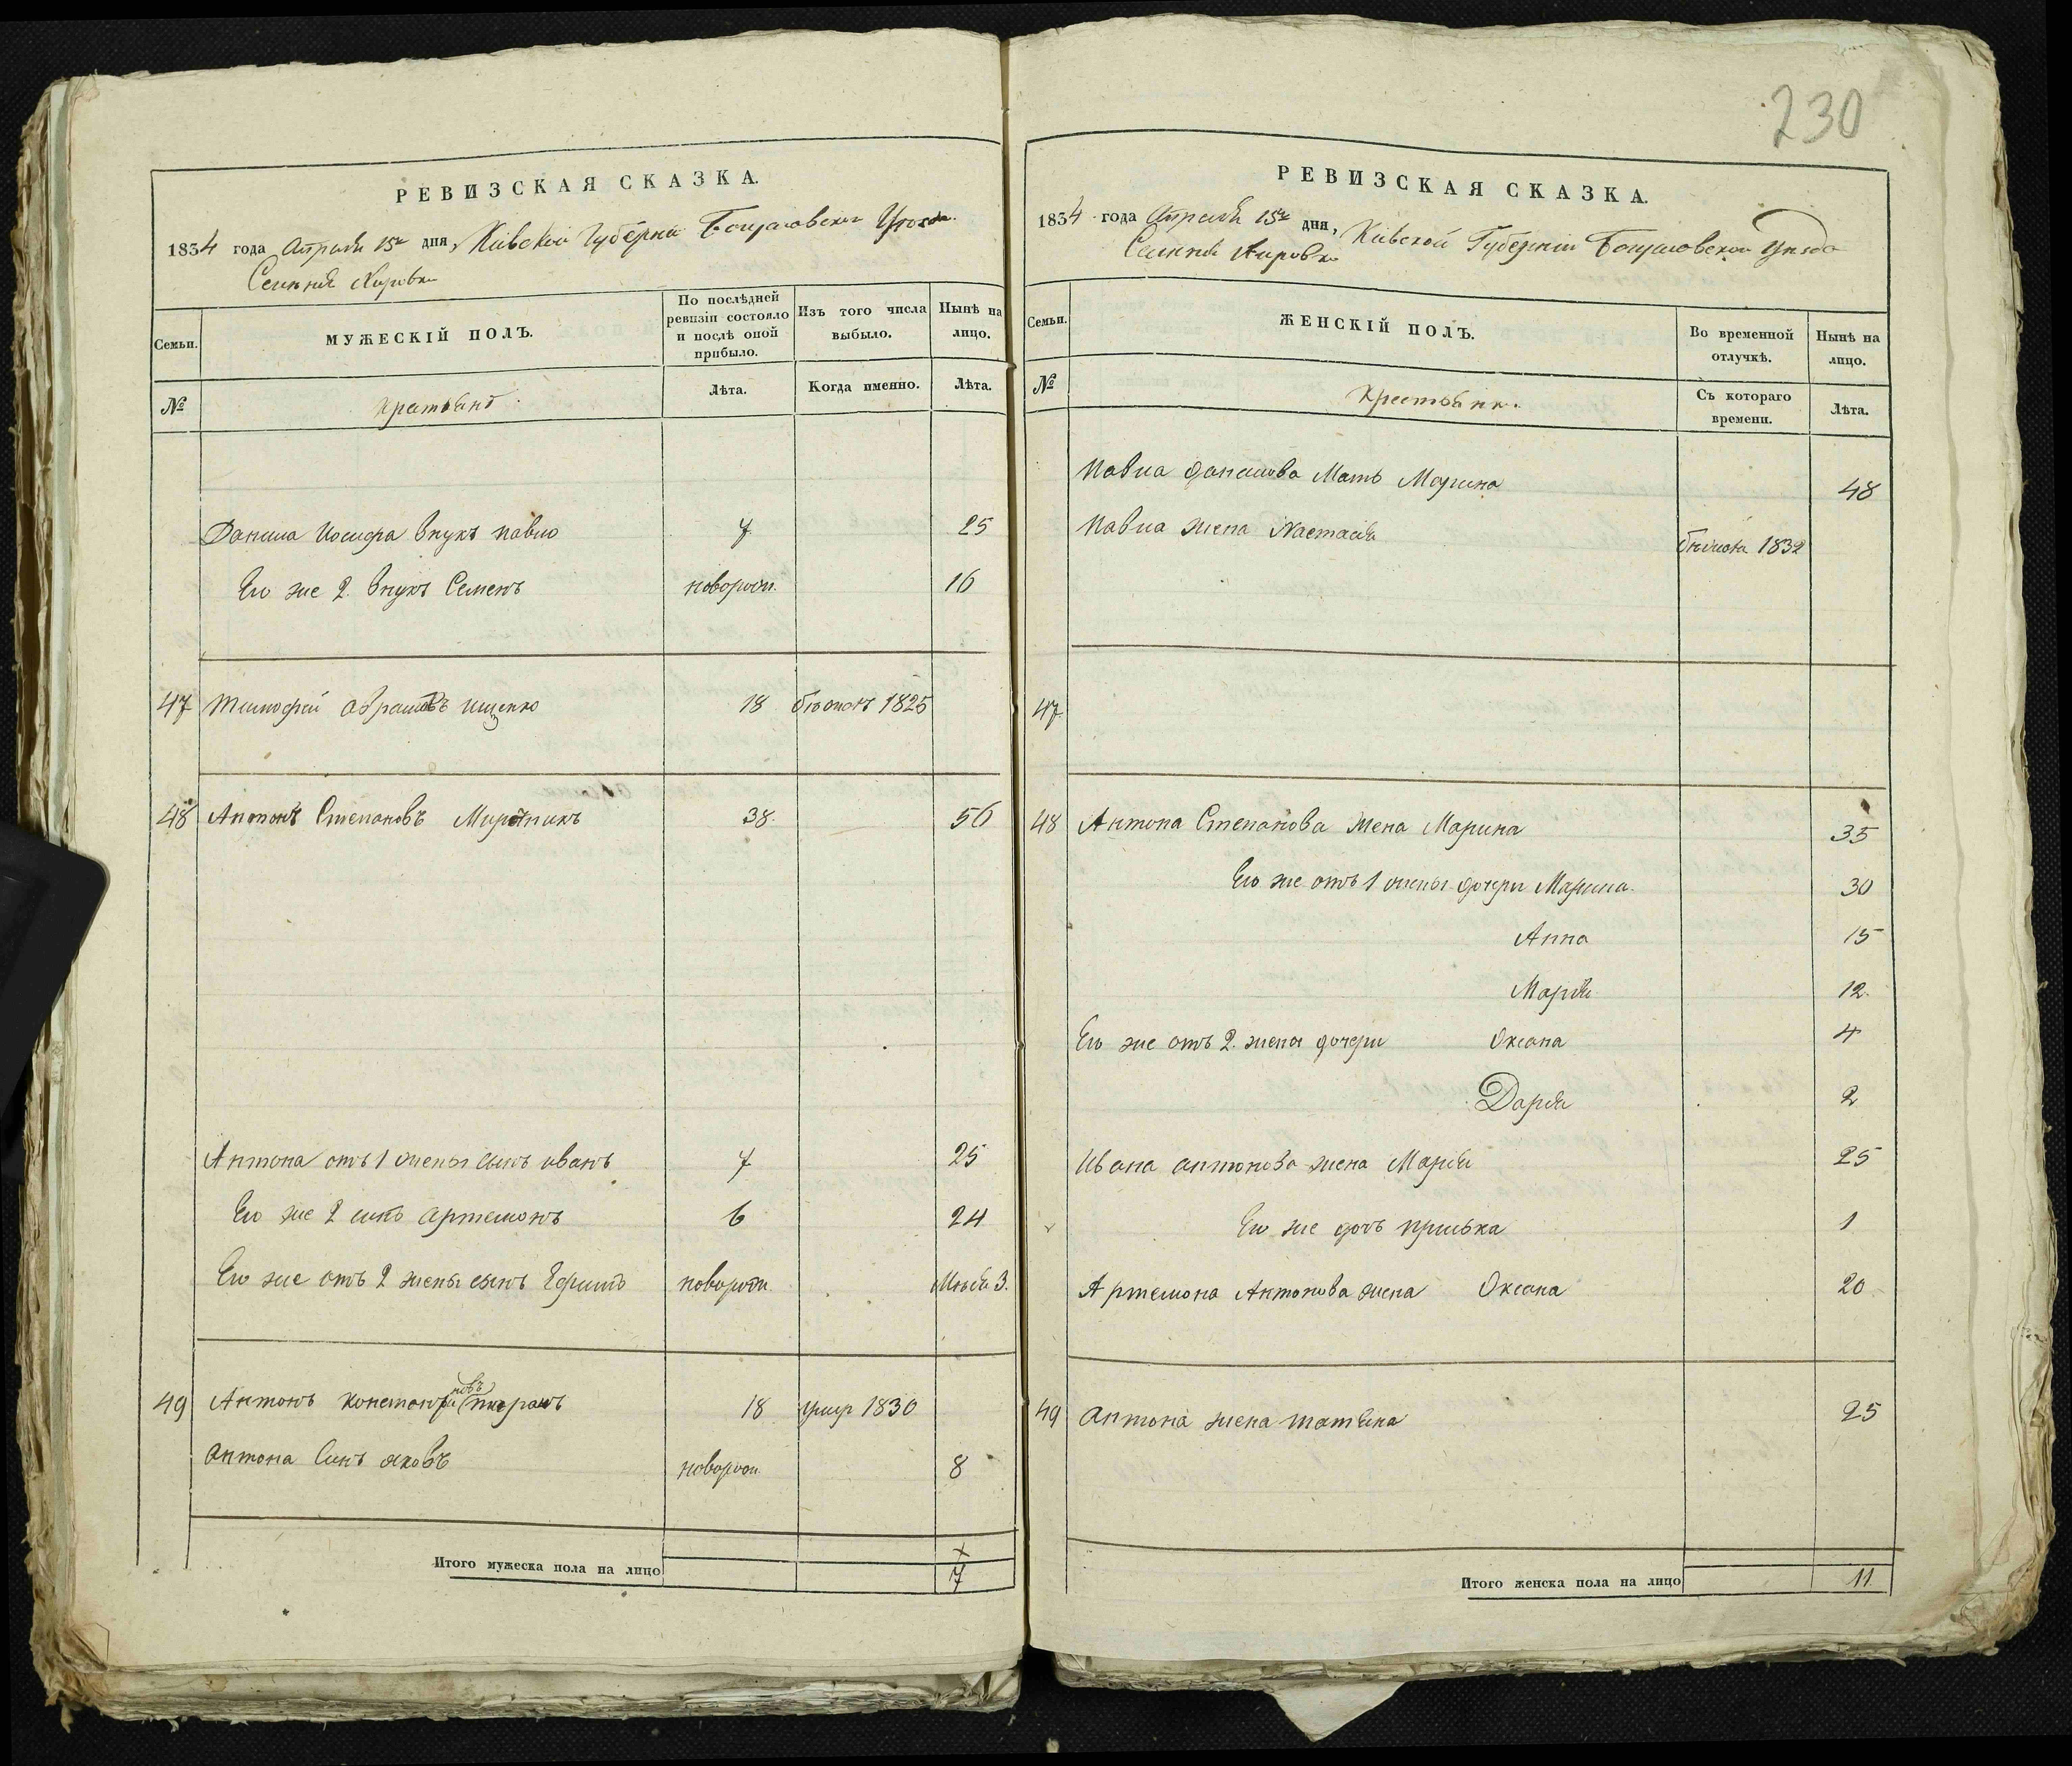 230
РЕВИЗСКАЯ СКАЗКА.
1834 года Апреля 15го дня, Кіевской Губерніи Богуславского Уезда
Селенія Кировки
Семьи.
МУЖЕСКІЙ ПОЛЪ.
По послѣдней ревизіи состояло и послѣ оной прибыло.
Изъ того числа выбыло.
Нынѣ на лицо.
№
Крестьянъ
Лѣта.
Когда именно.
Лѣта.
Данила Иосифа внукъ павло 7 25
Его же 2 внукъ Семенъ новорожд. 16
47 Тимофей Абрамовъ Ищенко 18 1825
48 Антонъ Степановъ Мирошникъ 38. 56
Антона отъ 1 жены сынъ иванъ 7 25
Его же 2 синъ артемонъ 6 24
Его же отъ 2 жены сынъ Ефимъ новорожд. 3.
49 Антонъ 18 умир 1830
Антона синъ яковъ новорож 8
Итого мужеска пола на лицо 7
РЕВИЗСКАЯ СКАЗКА.
1834 года Апреля 15го дня, Кіевской Губерніи Богуславского Уезда
Селенія Кировки
Семьи.
ЖЕНСКІЙ ПОЛЪ.
Во временной отлучкѣ.
Нынѣ на лицо.
№
Крестьянки.
Съ котораго времени.
Лѣта.
Павла данилова Мать Марина 48
Павла жена Настасія 1832
47
48 Антона Степанова жена Марина 35
Его же отъ 1 жены дочери Марина 30
Анна 15
Марія 12.
Его же отъ 2. жены дочери Оксана 4
Дарія 2
Ивана антонова жена Марія 25
Его же дочь приська 1
Артемона Антонова жена Оксана 20
49 Антона жена татіяна 25
Итого женска пола на лицо 11